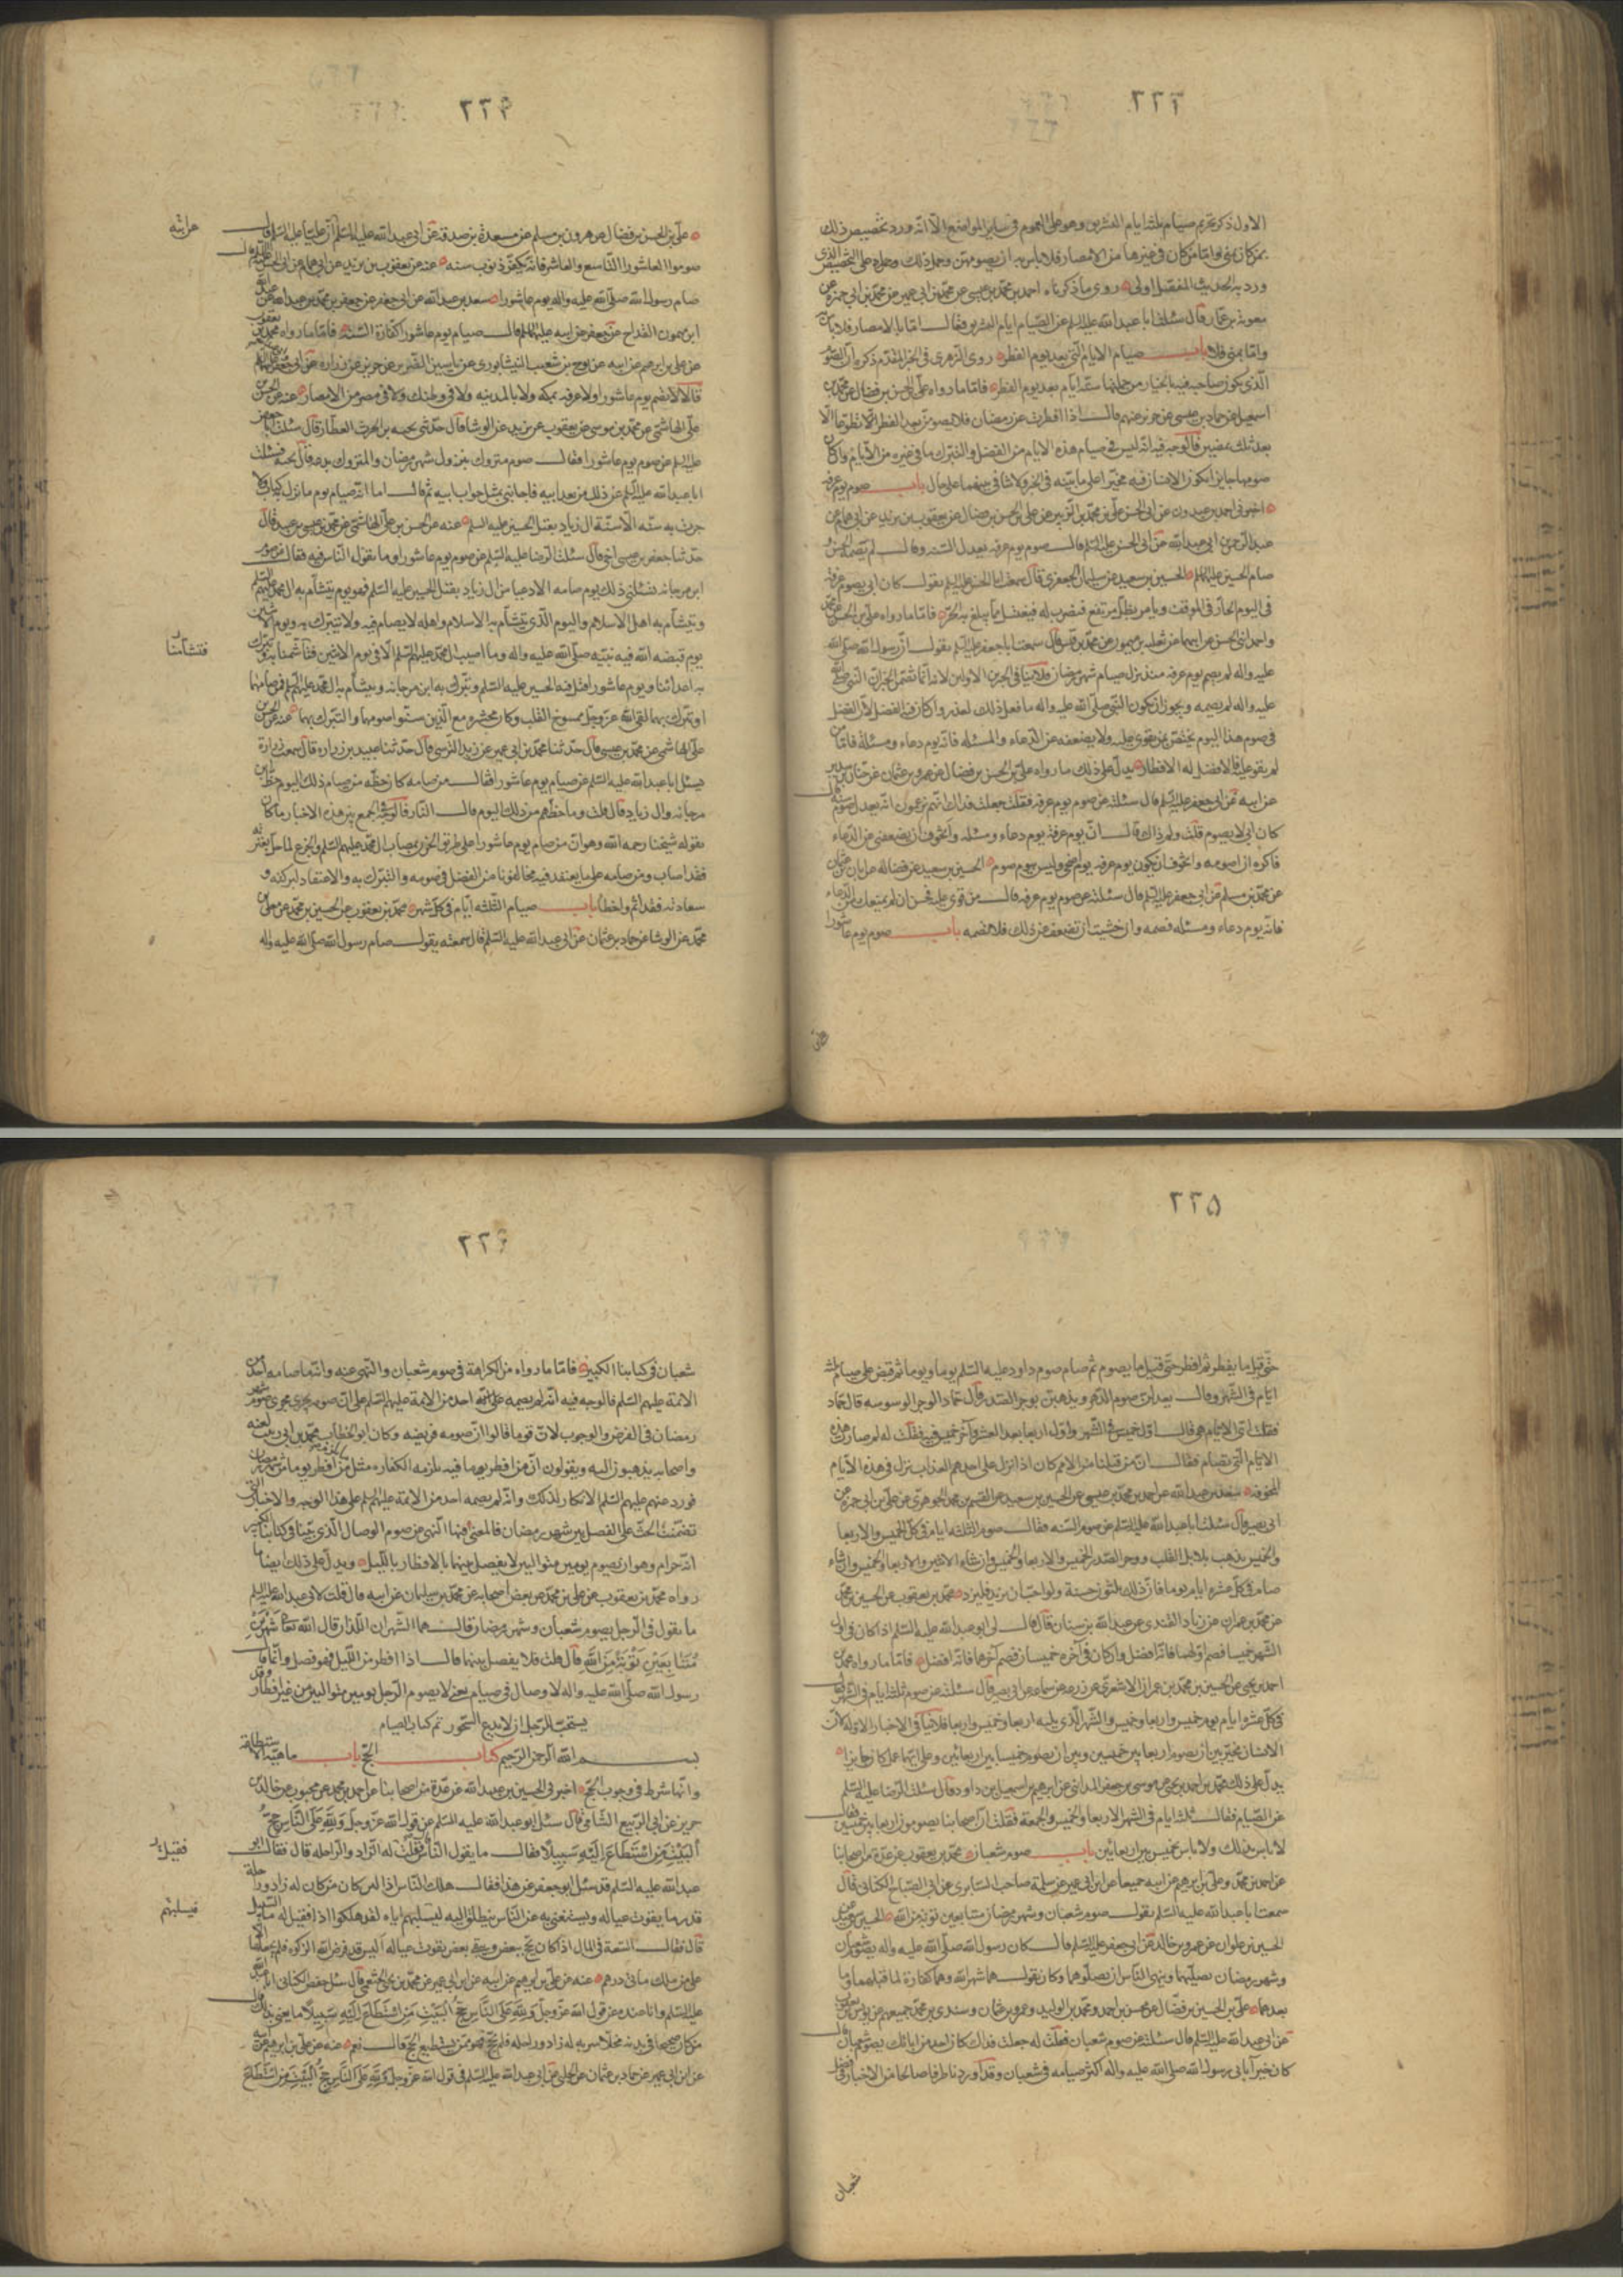 ٢٢٣
الاول ذكر تحريم صيام ثلثة ايام التشريق وهو على العموم فى ساير المواضع الا انه ورد تخصيص ذلك
بمن كان بمنى فاما من كان فى غيرها من الامصار فلا باس به ان يصومهن وحمل ذلك وحمله على التخصيص الذى
ورد به الحديث المفصل اولى روى ما ذكرناه احمد بن محمد بن عيسى عن محمد بن ابى عمير عن محمد بن ابى حمزة عن
معوية بن عمار قال سئلت ابا عبد الله عليه السلم عن الصيام ايام التشريق فقال اما بالامصار فلا باس به
واما بمنى فلا باب صيام الايام التى بعد يوم الفطر روى الزهرى فى الخبر المقدم ذكره ان الصوم
الذى يكون صاحبه فيه بالخيار من جملتها ستة ايام بعد يوم الفطر فاما ما رواه على بن الحسن بن فضال عن محمد بن
اسمعيل عن حماد بن عيسى عن حريز عنهم قال اذا افطرت عن رمضان فلا تصومن بعد الفطر تطوعا الا
بعد ثلث يمضين فالوجه فيه انه ليس فى صيام هذه الايام من الفضل والتبرك ما فى غيره من الايام وان كان
صومها جايزا يكون الانسان فيه مخيرا على ما بينه فى الخبر ولا تنافى بينهما على حال باب صوم يوم عرفة
اخبرنى احمد بن عبدون عن ابى الحسن على بن محمد بن الزبير عن على بن الحسن بن فضال عن يعقوب بن يزيد عن ابى همام عن
عبد الرحمن ابى عبد الله عن ابى الحسن عليه السلم قال صوم يوم عرفة يعدل السنة وقال لم يصمه الحسن
صام الحسين عليه السلم الحسين بن سعيد عن سليمان الجعفرى قال سمعت ابا الحسن عليه السلم يقول كان ابى يصوم عرفة
فى اليوم الحار فى الموقف ويامر بظل مرتفع فيضرب له فيغتسل مما يبلغ به الحر فاما ما رواه على بن الحسن عن محمد
واحمد ابنى الحسن عن ابيهما عن ثعلبة بن ميمون عن محمد بن قيس قال سمعت ابا جعفر عليه السلم يقول ان رسول الله صلى الله
عليه واله لم يصم يوم عرفة منذ نزل صيام شهر رمضان فلا ينافى الخبرين الاولين لانه انما تضمن الخبر ان النبى صلى الله
عليه واله لم يصمه ويجوز ان يكون النبى صلى الله عليه واله ما فعل ذلك لعذر وان كان فيه الفضل لان الفضل
فى صوم هذا اليوم يختص بمن يقوى عليه ولا يضعفه عن الدعاء والمسئلة فانه يوم دعاء ومسئلة فاما من
لم يقو عليه فالافضل له الافطار يدل على ذلك ما رواه على بن الحسن بن فضال عن عمرو بن عثمان عن حنان بن سدير
عن ابيه عن ابى جعفر عليه السلم قال سئلته عن صوم يوم عرفة فقلت جعلت فداك انهم يزعمون انه يعدل صوم سنة قال
كان ابى لا يصوم قلت ولم ذاك قال ان يوم عرفة يوم دعاء ومسئلة واتخوف ان يضعفنى عن الدعاء
فاكره ان اصومه واتخوف ان يكون يوم عرفة يوم اضحى وليس بيوم صوم الحسين بن سعيد عن فضالة عن ابان بن عثمان
عن محمد بن مسلم عن ابى جعفر عليه السلم قال سئلته عن صوم يوم عرفة قال من قوى عليه فحسن ان لم يمنعك من الدعاء
فانه يوم دعاء ومسئلة فصمه وان خشيت ان تضعف عن ذلك فلا تصمه باب صوم يوم عاشورا
على
٢٢۴
على بن الحسن بن فضال عن هرون بن مسلم عن مسعدة بن صدقة عن ابى عبد الله عليه السلم ان عليا عليه السلم قال
صوموا العاشورا التاسع والعاشر فانه يكفر ذنوب سنة عنه عن يعقوب بن يزيد عن ابى همام عن ابى الحسن عليه السلم قال
صام رسول الله صلى الله عليه واله يوم عاشورا سعد بن عبد الله عن ابى جعفر عن جعفر بن محمد بن عبد الله عن عبد الله
ابن ميمون القداح عن جعفر عن ابيه عليهما السلم قال صيام يوم عاشورا كفارة السنة فاما ما رواه محمد بن يعقوب
عن على بن ابرهيم عن ابيه عن نوح بن شعيب النيشابورى عن ياسين الضرير عن حريز عن زرارة عن ابى جعفر وابى عبد الله
قالا لا تصم يوم عاشورا ولا عرفة بمكة ولا بالمدينة ولا فى وطنك ولا فى مصر من الامصار عنه عن الحسن بن
على الهاشمى عن محمد بن موسى عن يعقوب بن يزيد عن الوشا قال حدثنى نجبة بن الحرث العطار قال سئلت ابا جعفر
عليه السلم عن صوم يوم عاشورا فقال صوم متروك بنزول شهر رمضان والمتروك بدعة قال نجبة فسئلت
ابا عبد الله عليه السلم عن ذلك من بعد ابيه فاجابنى بمثل جواب ابيه ثم قال اما انه صيام يوم ما نزل به كتاب ولا
جرت به سنة الا سنة ال زياد بقتل الحسين عليه السلم عنه عن الحسن بن على الهاشمى عن محمد بن عيسى بن عبيد قال
حدثنا جعفر بن عيسى اخى قال سئلت الرضا عليه السلم عن صوم يوم عاشورا وما يقول الناس فيه فقال عن صوم
ابن مرجانة تسئلنى ذلك يوم صامه الادعيا من ال زياد بقتل الحسين عليه السلم فهو يوم يتشأم به ال محمد عليهم السلم
ويتشأم به اهل الاسلام واليوم الذى يتشأم به الاسلام واهله لا يصام فيه ولا يتبرك به ويوم الاثنين
يوم قبضه الله فيه نبيه صلى الله عليه واله وما اصيب ال محمد عليهم السلم الا فى يوم الاثنين فتشأمنا به وتبرك
به اعدائنا ويوم عاشورا قتل فيه الحسين عليه السلم وتبرك به ابن مرجانة ويتشأم به ال محمد عليهم السلم فمن صامهما
او تبرك بهما لقى الله عز وجل ممسوخ القلب وكان محشره مع الذين سنوا صومهما والتبرك بهما عنه عن الحسن بن
على الهاشمى عن محمد بن عيسى قال حدثنا محمد بن ابى عمير عن زيد النرسى قال حدثنا عبيد بن زرارة قال سمعت زرارة
يسئل ابا عبد الله عليه السلم عن صيام يوم عاشورا فقال من صامه كان حظه من صيام ذلك اليوم حظ ابن
مرجانة وال زياد قال قلت وما حظهم من ذلك اليوم قال النار فالوجه فى الجمع بين هذه الاخبار ما كان
يقوله شيخنا رحمه الله وهو ان من صام يوم عاشورا على طريق الحزن بمصاب ال محمد عليهم السلم والجزع لما حل بعترته
فقد اصاب ومن صامه على ما يعتقد فيه مخالفونا من الفضل فى صومه والتبرك به والاعتقاد لبركته و
سعادته فقد اثم واخطا باب صيام الثلثة ايام فى كل شهر محمد بن يعقوب عن الحسين بن محمد عن معلى بن
محمد عن الوشا عن حماد بن عثمان عن ابى عبد الله عليه السلم قال سمعته يقول صام رسول الله صلى الله عليه واله
فتشأمنا
٢٢۵
حتى قيل ما يفطر ثم افطر حتى قيل ما يصوم ثم صام صوم داود عليه السلم يوما ويوما ثم قبض على صيام ثلثة
ايام فى الشهر وقال يعدلن صوم الدهر ويذهبن بوحر الصدر قال حماد الوحر الوسوسة قال حماد
فقلت اى الايام هى قال اول خميس فى الشهر واول اربعا بعد العشر واخر خميس فيه فقلت له لم صارت هذه
الايام التى تصام فقال ان من قبلنا من الامم كان اذا نزل على احدهم العذاب نزل فى هذه الايام
المخوفة سعد بن عبد الله عن احمد بن محمد بن عيسى عن الحسين بن سعيد عن القسم بن محمد الجوهرى عن على بن ابى حمزة عن
ابى بصير قال سئلت ابا عبد الله عليه السلم عن صوم السنة فقال صوم الثلثة ايام فى كل الخميس والاربعا
والخميس يذهب ببلابل القلب ووحر الصدر الخميس والاربعا والخميس وان شاء الاثنين والاربعا والخميس وان شاء
صام فى كل عشرة ايام يوما فان ذلك ثلثون حسنة ولو احب ان يزيد فليزد محمد بن يعقوب عن الحسين بن محمد
عن محمد بن عمران عن زياد القندى عن عبد الله بن سنان قال قال لى ابو عبد الله عليه السلم اذا كان فى اول
الشهر خميسان فصم اولهما فانه افضل وان كان فى اخره خميسان فصم اخرهما فانه افضل فاما ما رواه محمد بن
احمد بن يحيى عن الحسين بن محمد بن عمران الاشعرى عن زرعة عن سماعة عن ابى بصير قال سئلته عن صوم ثلثة ايام فى الشهر قال
فى كل عشرة ايام يوم خميس واربعا وخميس والشهر الذى يليه اربعا وخميس واربعا فلا ينافى الاخبار الاولة لان
الانسان مخير بين ان يصوم اربعا بين خميسين وبين ان يصوم خميسا بين اربعائين وعلى ايهما عمل كان جايزا
يدل على ذلك محمد بن احمد بن يحيى عن موسى بن جعفر المدائنى عن ابرهيم بن اسمعيل بن داود قال سئلت الرضا عليه السلم
عن الصيام فقال ثلثة ايام فى الشهر الاربعا والخميس والجمعة فقلت ان اصحابنا يصومون اربعا بين خميسين فقال
لا باس بذلك ولا باس بخميس بين اربعائين باب صوم شعبان محمد بن يعقوب عن عدة من اصحابنا
عن احمد بن محمد وعلى بن ابرهيم عن ابيه جميعا عن ابن ابى عمير عن سلمة صاحب السابرى عن ابى الصباح الكنانى قال
سمعت ابا عبد الله عليه السلم يقول صوم شعبان وشهر رمضان متتابعين توبة من الله الحسين بن سعيد عن
الحسين بن علوان عن عمرو بن خالد عن ابى جعفر عليه السلم قال كان رسول الله صلى الله عليه واله يصوم شعبان
وشهر رمضان يصلهما وينهى الناس ان يصلوهما وكان يقول هما شهرا الله وهما كفارة لما قبلهما وما
بعدهما على بن الحسين بن فضال عن محسن بن احمد ومحمد بن الوليد وعمرو بن عثمان وسندى بن محمد جميعهم عن يونس بن يعقوب
عن ابى عبد الله عليه السلم قال سئلته عن صوم شعبان فقلت له جعلت فداك كان احد من ابائك يصوم شعبان قال
كان خير ابائى رسول الله صلى الله عليه واله اكثر صيامه فى شعبان وقد اوردنا طرفا صالحا من الاخبار فى فضل
شعبان
٢٢۶
شعبان فى كتابنا الكبير فاما ما رواه من الكراهة فى صوم شعبان والنهى عنه وانه ما صامه احد من
الائمة عليهم السلم فالوجه فيه انه لم يصمه على انه احد من الائمة عليهم السلم على ان صومه يجرى مجرى صوم شهر
رمضان فى الفرض والوجوب لان قوما قالوا ان صومه فريضة وكان ابو الخطاب محمد بن ابى زينب لعنه
واصحابه يذهبون اليه ويقولون ان من افطر يوما فيه يلزمه الكفارة مثل من افطر يوما من شهر رمضان
فورد عنهم عليهم السلم الانكار لذلك وانه لم يصمه احد من الائمة عليهم السلم على هذا الوجه والاخبار التى
تضمنت الحث على الفصل بين شهر رمضان فالمعنى فيها النهى عن صوم الوصال الذى بينا فى كتابنا الكبير
انه حرام وهو ان يصوم يومين متواليين لا يفصل بينهما بالافطار بالليل ويدل على ذلك ايضا ما
رواه محمد بن يعقوب عن على بن محمد عن بعض اصحابه عن محمد بن سليمان عن ابيه قال قلت لابى عبد الله عليه السلم
ما تقول فى الرجل يصوم شعبان وشهر رمضان قال هما الشهران اللذان قال الله تعالى شهرين
متتابعين توبة من الله قال قلت فلا يفصل بينهما قال اذا افطر من الليل فهو فصل وانما قال
رسول الله صلى الله عليه واله لا وصال فى صيام يعنى لا يصوم الرجل يومين متواليين من غير افطار وقد
يستحب للرجل ان لا يدع السحور تم كتاب الصيام
بسم الله الرحمن الرحيم كتاب الحج باب ماهية الاستطاعة
وانها شرط فى وجوب الحج اخبرنى الحسين بن عبيد الله عن عدة من اصحابنا عن احمد بن محمد عن محبوب عن خالد بن
جرير عن ابى الربيع الشامى قال سئل ابو عبد الله عليه السلم عن قول الله عز وجل ولله على الناس حج
البيت من استطاع اليه سبيلا فقال ما يقول الناس فقلت له الزاد والراحلة قال فقال ابو
عبد الله عليه السلم قد سئل ابو جعفر عن هذا فقال هلك الناس اذا لئن كان من كان له زاد وراحلة
قدر ما يقوت عياله ويستغنى به عن الناس ينطلق اليه ليسلبهم اياه لقد هلكوا اذا فقيل له ما السبيل
قال فقال السعة فى المال اذا كان يحج ببعض ويبقى بعض يقوت عياله اليس قد فرض الله الزكوة فلم يجعلها الا
على من ملك مائتى درهم عنه عن على بن ابرهيم عن ابيه عن ابن ابى عمير عن محمد بن يحيى الخثعمى قال سئل حفص الكناسى ابا عبد الله
عليه السلم وانا عنده عن قول الله عز وجل ولله على الناس حج البيت من استطاع اليه سبيلا ما يعنى بذلك قال
من كان صحيحا فى بدنه مخلا سربه له زاد وراحلة فلم يحج فهو ممن يستطيع الحج قال نعم عنه عن على بن ابرهيم عن ابيه
عن ابن ابى عمير عن حماد بن عثمان عن الحلبى عن ابى عبد الله عليه السلم فى قول الله عز وجل ولله على الناس حج البيت من استطاع
فقيل
فيسلبهم